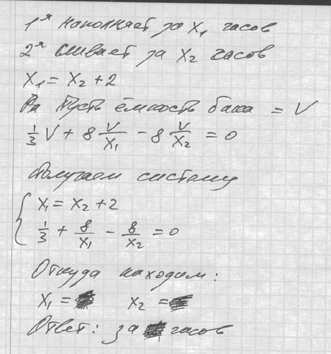 1я наполняет за X₁ часов
2я сливает за X₂ часов
X₁ = X₂ + 2
Пусть ёмкость бака = V
1/3 V + 8 V/X₁ − 8 V/X₂ = 0
Получаем систему
{ X₁ = X₂ + 2
1/3 + 8/X₁ − 8/X₂ = 0
Откуда находим:
X₁ = X₂ =
Ответ: за часов